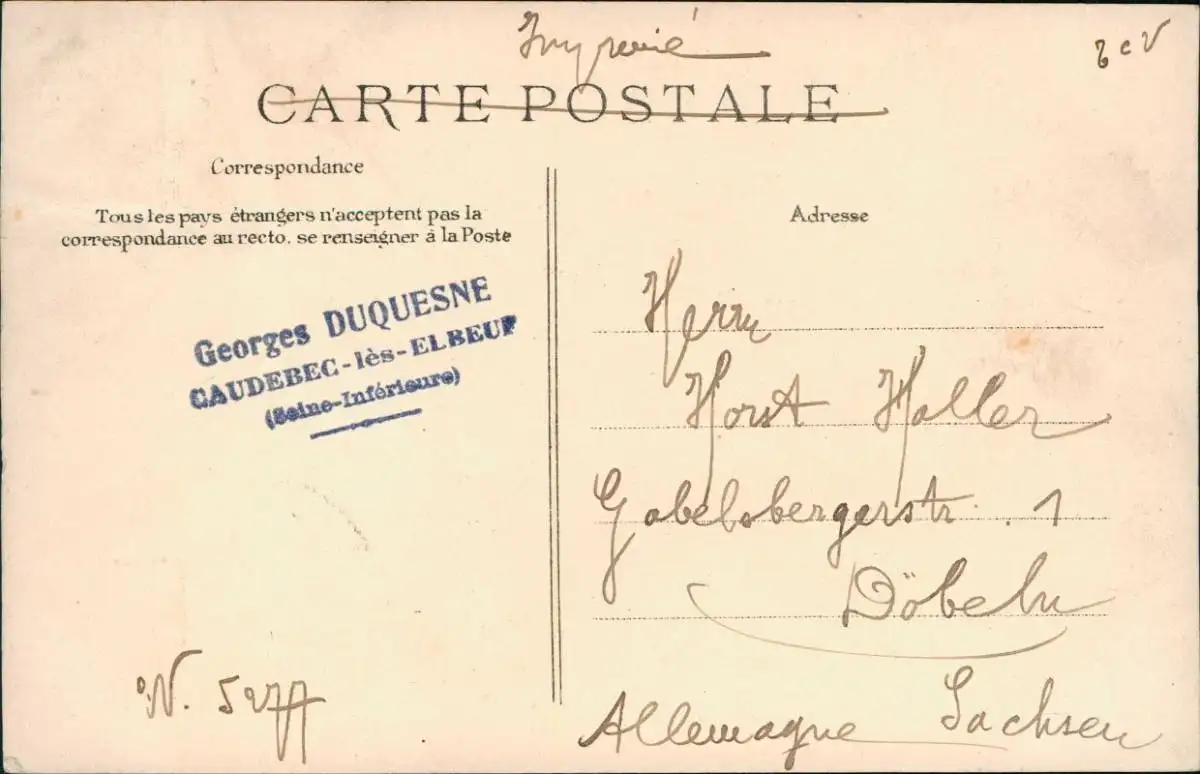 Imprimé
CARTE POSTALE
Correspondance
Tous les pays étrangers n'acceptent pas la
correspondance au recto. se renseigner à la Poste
Georges DUQUESNE
CAUDEBEC-lès-ELBEUF
(Seine-Inférieure)
N. 5277
Adresse
Herrn
Horst Haller
Gabelsbergerstr. 1
Döbeln
Allemagne Sachsen